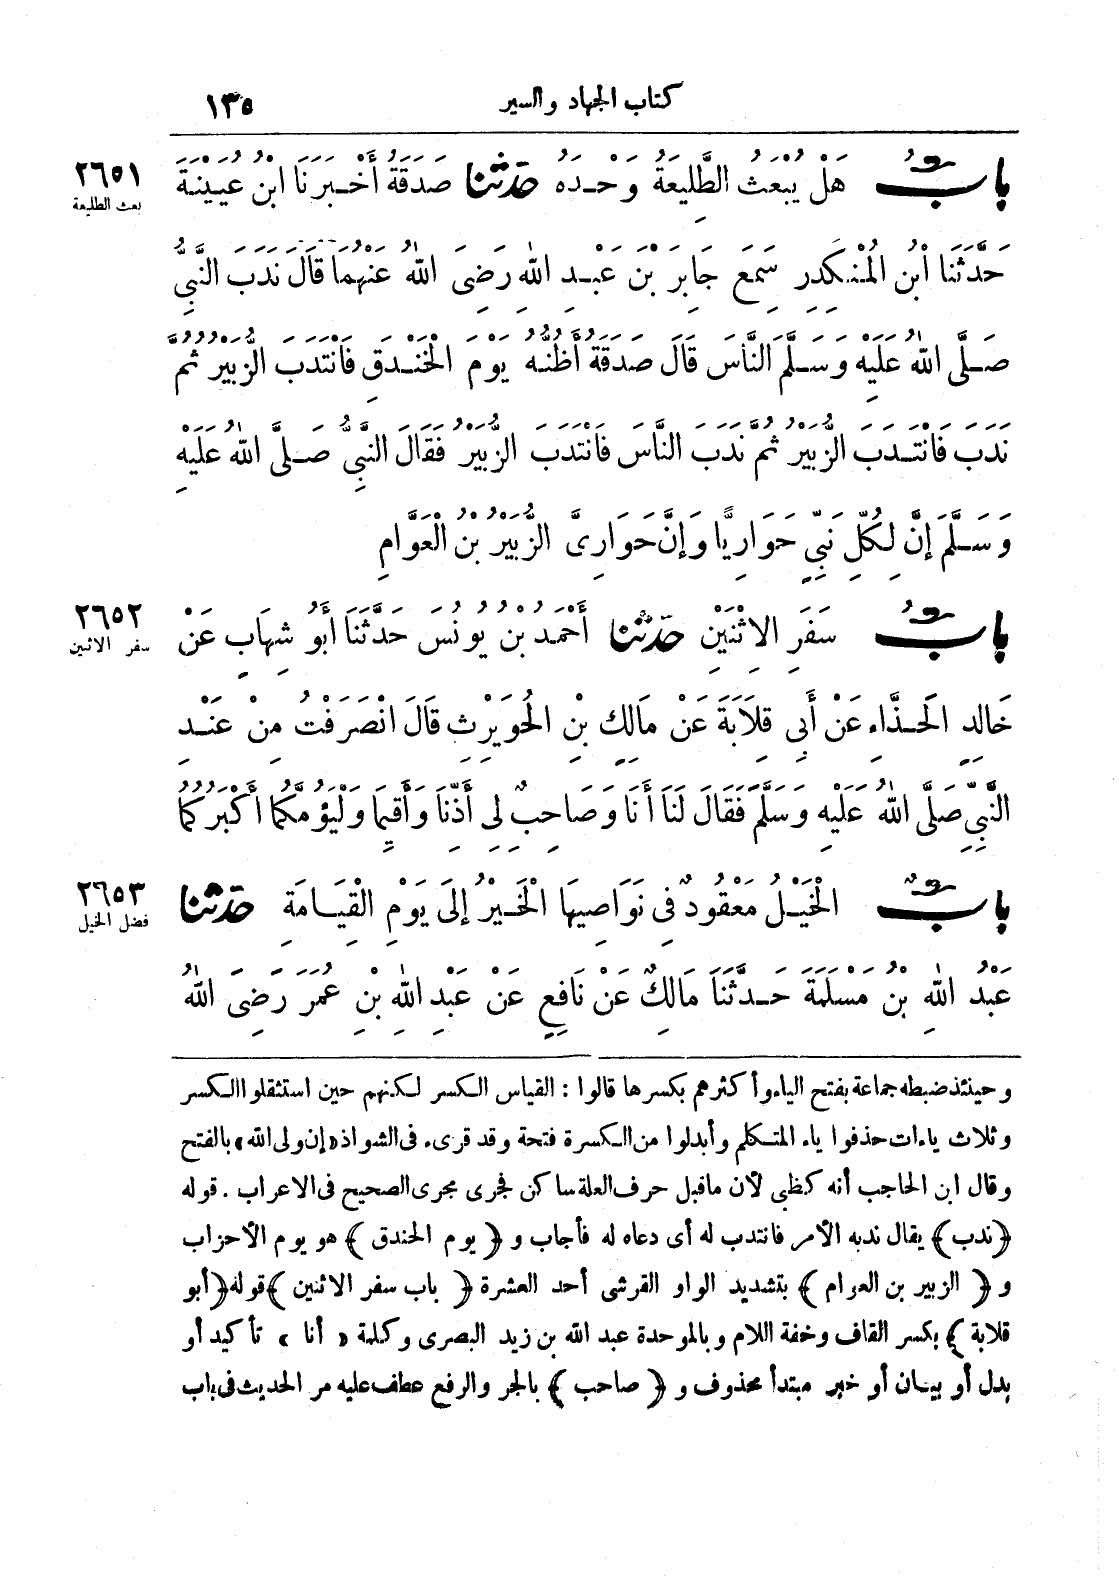 كتاب الجهاد والسير
١٣٥
بَابٌ هَلْ يُبْعَثُ الطَّلِيعَةُ وَحْدَهُ حَدَّثَنَا صَدَقَةُ أَخْبَرَنَا ابْنُ عُيَيْنَةَ
٢٦٥١
بعث الطليعة
حَدَّثَنَا ابْنُ الْمُنْكَدِرِ سَمِعَ جَابِرَ بْنَ عَبْدِ اللهِ رَضِىَ اللهُ عَنْهُمَا قَالَ نَدَبَ النَّبِيُّ
صَلَّى اللهُ عَلَيْهِ وَسَلَّمَ النَّاسَ قَالَ صَدَقَةُ أَظُنُّهُ يَوْمَ الْخَنْدَقِ فَانْتَدَبَ الزُّبَيْرُ ثُمَّ
نَدَبَ فَانْتَدَبَ الزُّبَيْرُ ثُمَّ نَدَبَ النَّاسَ فَانْتَدَبَ الزُّبَيْرُ فَقَالَ النَّبِيُّ صَلَّى اللهُ عَلَيْهِ
وَسَلَّمَ إِنَّ لِكُلِّ نَبِيٍّ حَوَارِيًّا وَإِنَّ حَوَارِىَّ الزُّبَيْرُ بْنُ الْعَوَّامِ
بَابُ سَفَرِ الِاثْنَيْنِ حَدَّثَنَا أَحْمَدُ بْنُ يُونُسَ حَدَّثَنَا أَبُو شِهَابٍ عَنْ
٢٦٥٢
سفر الاثنين
خَالِدٍ الْحَذَّاءِ عَنْ أَبِي قِلَابَةَ عَنْ مَالِكِ بْنِ الْحُوَيْرِثِ قَالَ انْصَرَفْتُ مِنْ عِنْدِ
النَّبِيِّ صَلَّى اللهُ عَلَيْهِ وَسَلَّمَ فَقَالَ لَنَا أَنَا وَصَاحِبٌ لِى أَذِّنَا وَأَقِيمَا وَلْيَؤُمَّكُمَا أَكْبَرُكُمَا
بَابٌ الْخَيْلُ مَعْقُودٌ فِى نَوَاصِيهَا الْخَيْرُ إِلَى يَوْمِ الْقِيَامَةِ حَدَّثَنَا
٢٦٥٣
فضل الخيل
عَبْدُ اللهِ بْنُ مَسْلَمَةَ حَدَّثَنَا مَالِكٌ عَنْ نَافِعٍ عَنْ عَبْدِ اللهِ بْنِ عُمَرَ رَضِىَ اللهُ
وحينئذ ضبطه جماعة بفتح الياء وأكثرهم بكسرها قالوا : القياس الكسر لكنهم حين استثقلوا الكسر
وثلاث ياءات حذفوا ياء المتكلم وأبدلوا من الكسرة فتحة وقد قرىء فى الشواذ «إن ولى الله» بالفتح
وقال ابن الحاجب أنه كظبى لأن ماقبل حرف العلة ساكن فجرى مجرى الصحيح فى الاعراب . قوله
﴿ندب﴾ يقال ندبه الأمر فانتدب له أى دعاه له فأجاب و﴿يوم الخندق﴾ هو يوم الأحزاب
و﴿الزبير بن العوام﴾ بتشديد الواو القرشى أحد العشرة ﴿باب سفر الاثنين﴾ قوله ﴿أبو
قلابة﴾ بكسر القاف وخفة اللام وبالموحدة عبد الله بن زيد البصرى وكلمة «أنا» تأكيد أو
بدل أو بيان أو خبر مبتدأ محذوف و﴿صاحب﴾ بالجر والرفع عطف عليه مر الحديث فى باب